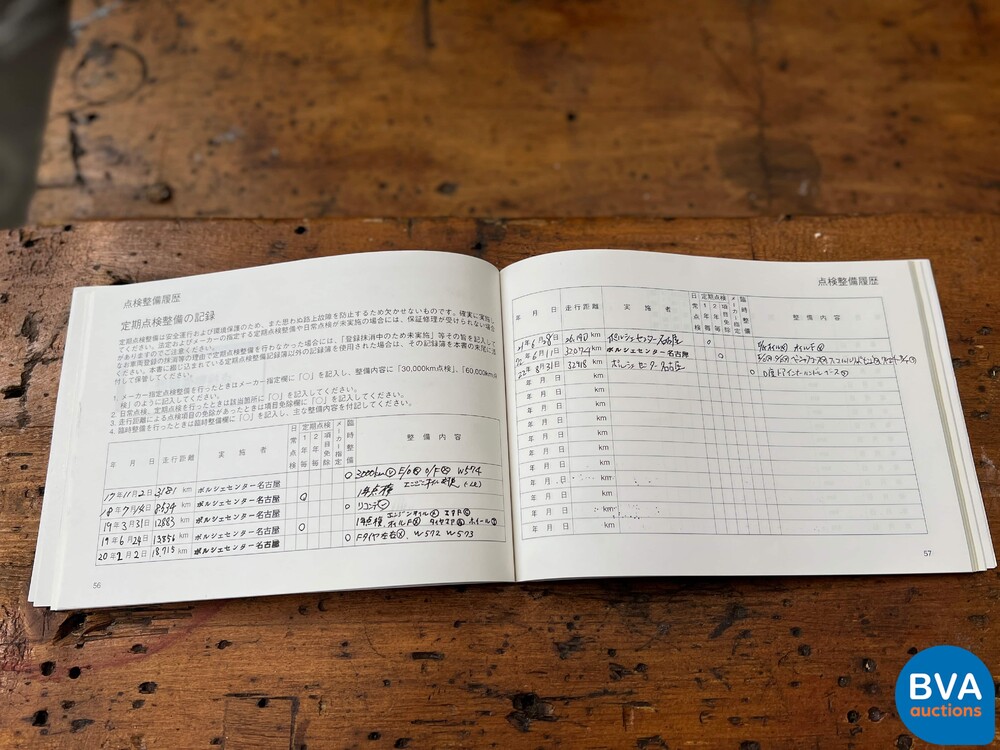 点検整備履歴
定期点検整備の記録
定期点検整備は安全運行および環境保護のため、また思わぬ故障を防止するため欠かせないものです。確実に実施し
てください。法定およびメーカーの指定する定期点検整備や日常点検が未実施の場合には、保証修理が受けられない場合
がありますのでご注意ください。
なお車両整備の廃減等の理由で定期点検整備を行わなかった場合には、「登録抹消中のため未実施」等その旨を記入して
ください。本書に綴じ込まれている定期点検整備記録簿以外の記録簿を使用された場合は、その記録簿を本書の末尾に添
付して保管してください。
1. メーカー指定点検整備を行ったときはメーカー指定欄に「○」を記入し、整備内容に「30,000km点検」、「60,000km点
検」のように記入してください。
2. 日常点検、定期点検を行ったときは該当箇所に「○」を記入してください。
3. 走行距離による点検項目の免除があったときは項目免除欄に「○」を記入してください。
4. 臨時整備を行ったときは臨時整備欄に「○」を記入し、主な整備内容を付記してください。
年 月 日 走行距離 実施者 日常点検 定期点検 1年毎 2年毎 項目免除 メーカー指定 臨時整備 整備内容
17年11月2日 3181 km ポルシェセンター名古屋 ○ 3000km E/O O/F W574
18年9月14日 8534 km ポルシェセンター名古屋 ○ 1年点検
19年3月31日 12883 km ポルシェセンター名古屋 ○ リコール
19年6月24日 13856 km ポルシェセンター名古屋 ○ 1年点検 エンジンオイル
20年2月2日 18,715 km ポルシェセンター名古屋 ○ Fタイヤ左右 W572 W573
56
点検整備履歴
年 月 日 走行距離 実施者 日常点検 定期点検 1年毎 2年毎 項目免除 メーカー指定 臨時整備 整備内容
21年6月 26,190 km ポルシェセンター名古屋 ○
22年6月11日 32074 km ポルシェセンター名古屋 ○
22年8月31日 32418 km ポルシェセンター名古屋 ○
年 月 日 km
年 月 日 km
年 月 日 km
年 月 日 km
年 月 日 km
年 月 日 km
年 月 日 km
年 月 日 km
年 月 日 km
57
BVA
auctions